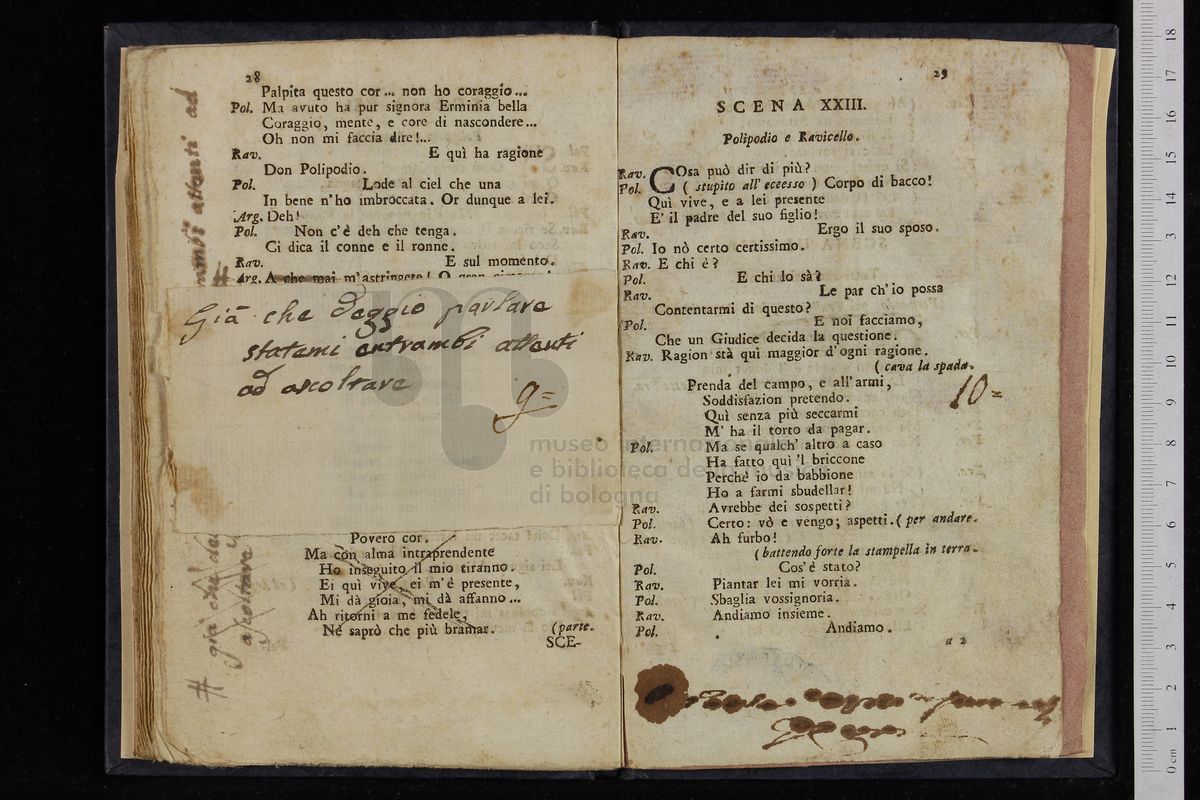 28
Palpita questo cor... non ho coraggio...
Pol. Ma avuto ha pur signora Erminia bella
Coraggio, mente, e core di nascondere...
Oh non mi faccia dire!...
Rav. E quì ha ragione
Don Polipodio.
Pol. Lode al ciel che una
In bene n'ho imbroccata. Or dunque a lei.
Arg. Deh!
Pol. Non c'è deh che tenga.
Ci dica il conne e il ronne.
Rav. E sul momento.
Arg. A che mai m'astringete! O gran
Già che deggio parlare
statemi entrambi attenti
ad ascoltare
9=
Povero cor.
Ma con alma intraprendente
Ho inseguito il mio tiranno.
Ei quì vive, ei m'è presente,
Mi dà gioia, mi dà affanno...
Ah ritorni a me fedele,
Nè saprò che più bramar. (parte.
SCE-
attenti ad
già che
ascoltare
29
SCENA XXIII.
Polipodio e Ravicello.
Rav. COsa può dir di più?
Pol. ( stupito all' eccesso ) Corpo di bacco!
Quì vive, e a lei presente
E' il padre del suo figlio!
Rav. Ergo il suo sposo.
Pol. Io nò certo certissimo.
Rav. E chi è?
Pol. E chi lo sà?
Rav. Le par ch'io possa
Contentarmi di questo?
Pol. E noi facciamo,
Che un Giudice decida la questione.
Rav. Ragion stà quì maggior d'ogni ragione.
( cava la spada.
Prenda del campo, e all'armi,
Soddisfazion pretendo.
Quì senza più seccarmi
M' ha il torto da pagar.
10=
Pol. Ma se qualch' altro a caso
Ha fatto quì 'l briccone
Perchè io da babbione
Ho a farmi sbudellar!
Rav. Avrebbe dei sospetti?
Pol. Certo: vò e vengo; aspetti. ( per andare.
Rav. Ah furbo!
( battendo forte la stampella in terra.
Pol. Cos'è stato?
Rav. Piantar lei mi vorria.
Pol. Sbaglia vossignoria.
Rav. Andiamo insieme.
Pol. Andiamo.
a 2
museo internazionale
e biblioteca della musica
di bologna